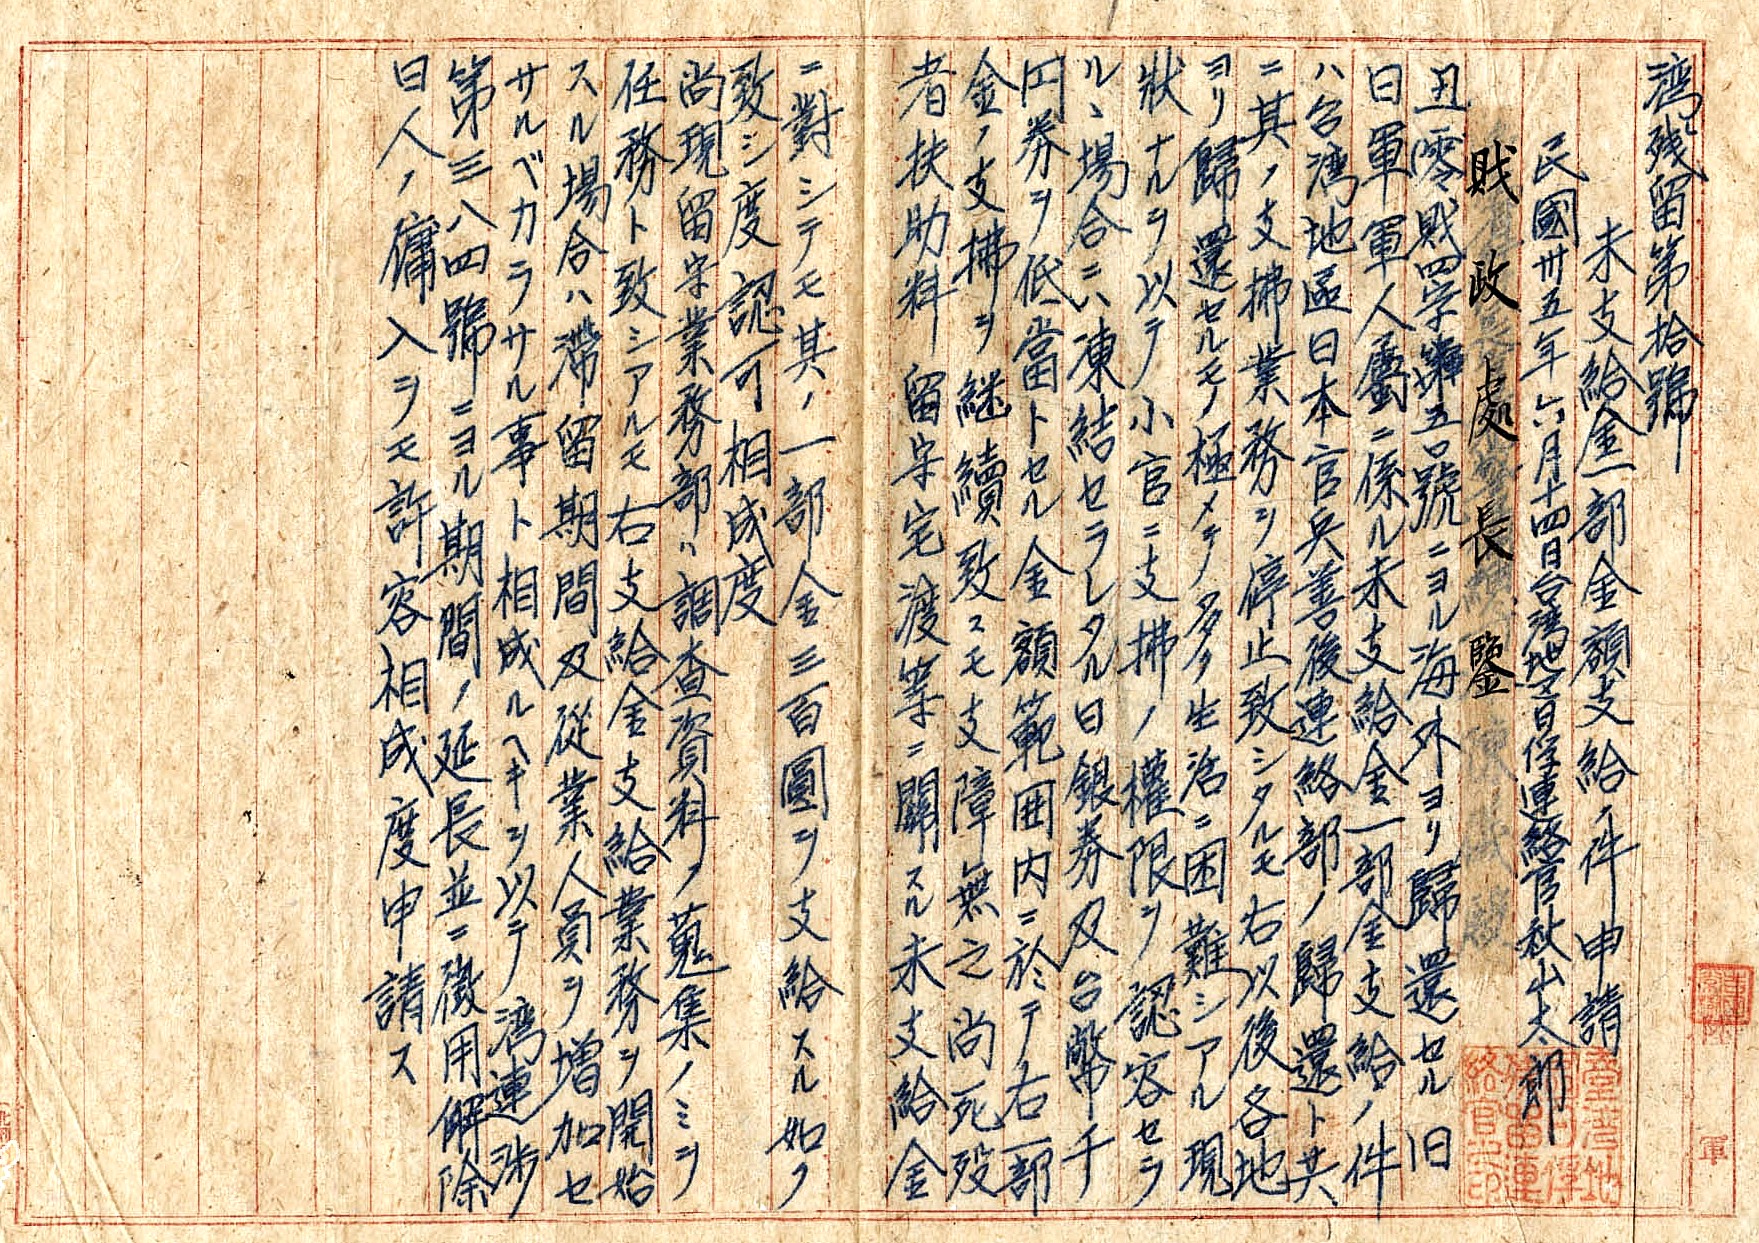 湾残留第拾號
未支給金一部金額支給ノ件申請
民國卅五年六月十四日台湾地区日俘連絡官秋山太郎
財政處長鑒
丑霽財四字第五号號ニヨル海外ヨリ歸還セル旧
日軍軍人屬ニ係ル未支給金一部金支給ノ件
ハ台湾地區日本官兵善後連絡部ノ歸還ト共
ニ其ノ支拂業務ヲ停止致シタルモ右以後各地
ヨリ歸還セルモノ極メテ多ク生活ニ困難シアル現
狀ナルヲ以テ小官ニ支拂ノ權限ヲ認容セラ
ルヽ場合ニハ凍結セラレタル日銀券及台幣千
円券ヲ低當トセル金額範囲内ニ於テ右一部
金ノ支拂ヲ継續致スモ支障無之尚死歿
者扶助料留守宅渡等ニ關スル未支給金
ニ對シテモ其ノ一部金三百圓ヲ支給スル如ク
致シ度認可相成度
尚現留守業務部ハ調査資料ノ蒐集ノミヲ
任務ト致シアルモ右支給金支給業務ヲ開始
スル場合ハ滞留期間及從業人員ヲ増加セ
サルベカラサル事ト相成ルヘキヲ以テ湾連涉
第三八四號ニヨル期間ノ延長並ニ徴用解除
日人ノ傭入ヲモ許容相成度申請ス
軍